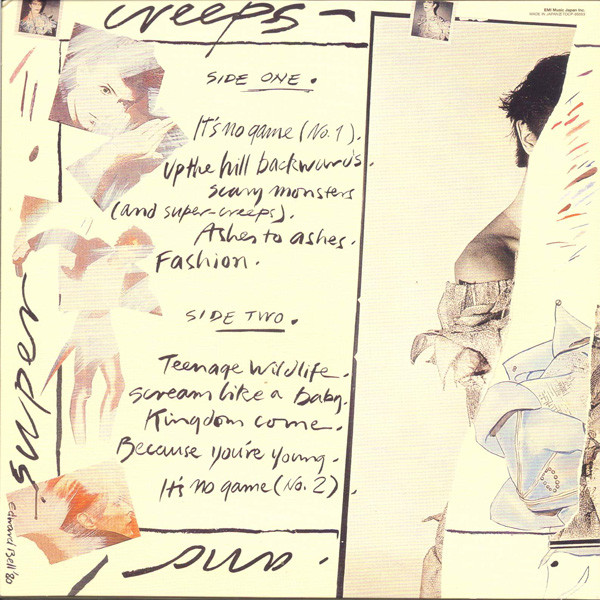 creeps
EMI Music Japan Inc.
SIDE ONE.
It's no game (No. 1).
up the hill backwards.
scary monsters
(and super-creeps).
Ashes to ashes.
Fashion.
SIDE TWO.
Teenage wildlife.
scream like a baby.
Kingdom come.
Because you're young.
It's no game (No. 2).
super
and
Edward Bell '80